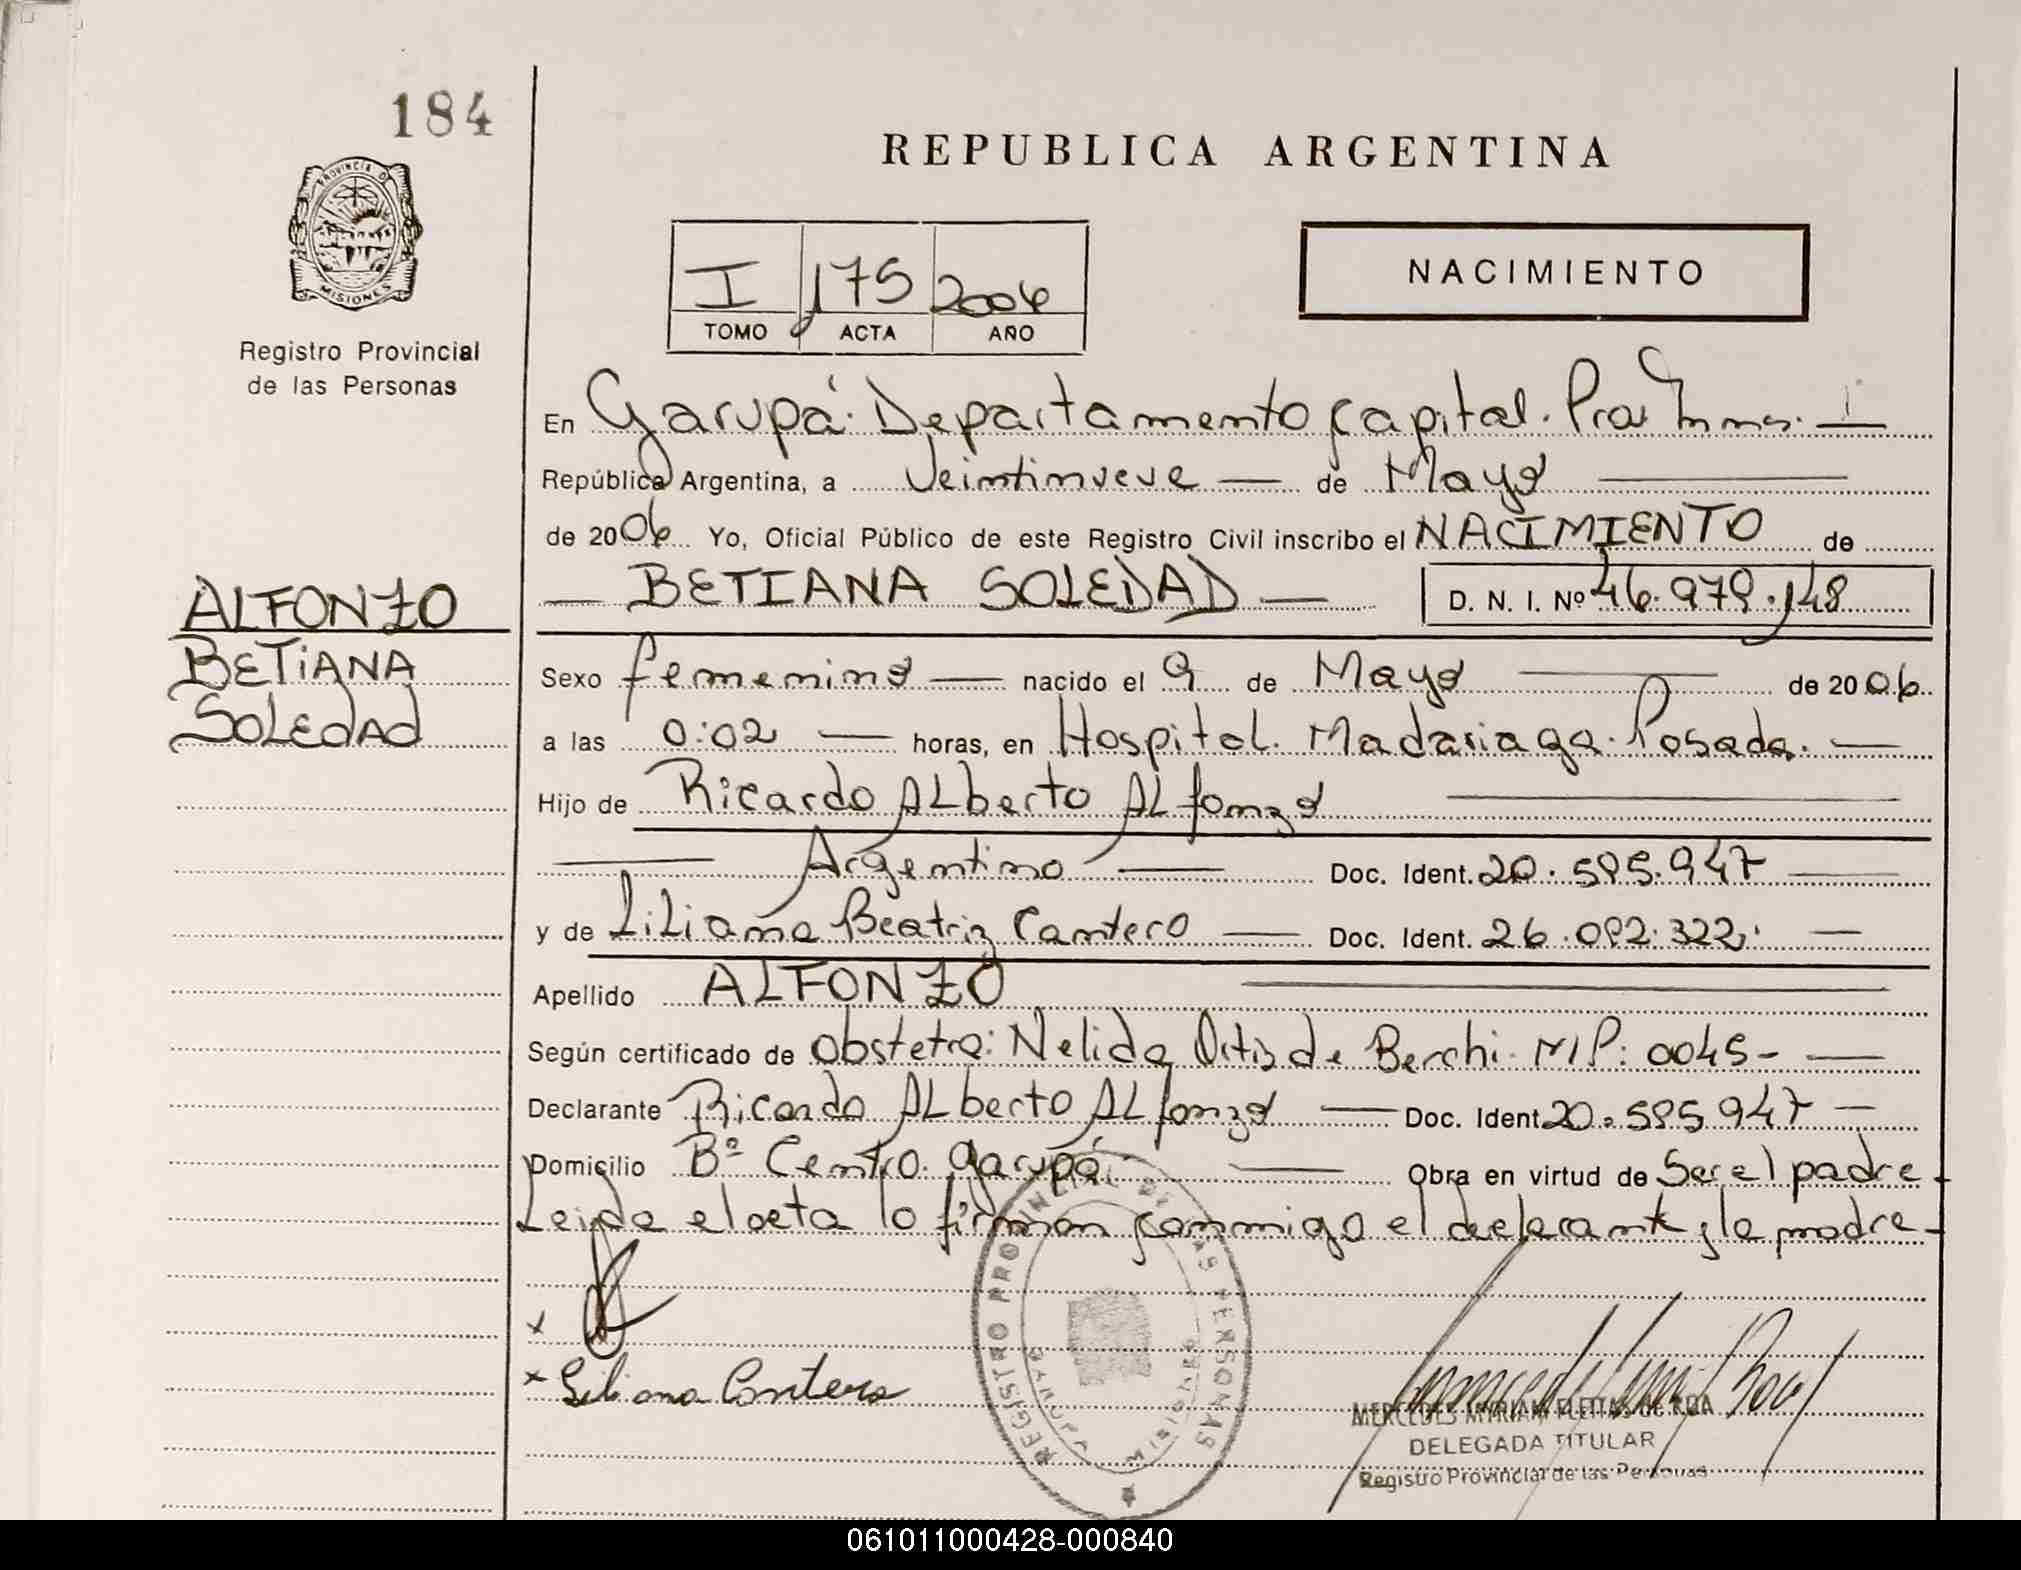 184
PROVINCIA DE
MISIONES
Registro Provincial
de las Personas
REPUBLICA ARGENTINA
I 175 2006
TOMO ACTA AÑO
NACIMIENTO
En Garupá Departamento Capital. Pcia Mnes.
República Argentina, a Veintinueve de Mayo
de 2006 Yo, Oficial Público de este Registro Civil inscribo el NACIMIENTO de
BETIANA SOLEDAD D. N. I. Nº 46.979.148
ALFONZO
BETIANA
SOLEDAD
Sexo femenino nacido el 9 de Mayo de 2006
a las 0:02 horas, en Hospital. Madariaga. Posadas.
Hijo de Ricardo Alberto Alfonzo
Argentino Doc. Ident. 20.595.947
y de Liliana Beatriz Cantero Doc. Ident. 26.092.322.
Apellido ALFONZO
Según certificado de obstetra: Nelida Ortiz de Berchi. M.P: 0045-
Declarante Ricardo Alberto Alfonzo Doc. Ident. 20.595.947
Domicilio Bº Centro. Garupá. Obra en virtud de Ser el padre
Leida el acta lo firman conmigo el declarante y la madre-
x
x Liliana Cantero
REGISTRO PROVINCIAL DE LAS PERSONAS
MISIONES
MERCEDES MYRIAM FLEITAS de ROA
DELEGADA TITULAR
Registro Provincial de las Personas
061011000428-000840